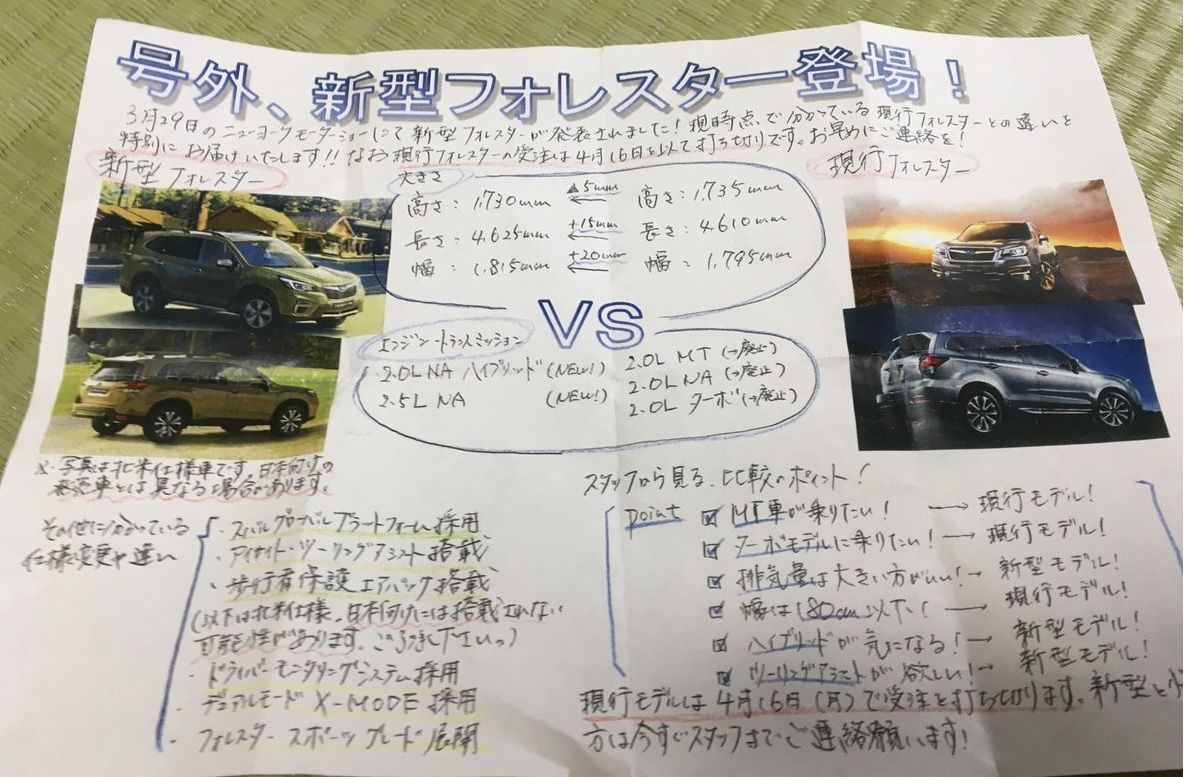 号外、新型フォレスター登場!
3月29日のニューヨークモーターショーにて新型フォレスターが発表されました!現時点で分かっている現行フォレスターとの違いを
特別にお届けいたします!!なお現行フォレスターの受注は4月16日を以て打ち切りです。お早めにご連絡を!
新型フォレスター
大きさ
現行フォレスター
高さ:1,730mm ▲5mm ← 高さ:1,735mm
長さ:4,625mm +15mm ← 長さ:4610mm
幅:1,815mm +20mm ← 幅:1,795mm
VS
エンジン・トランスミッション
2.0L NA ハイブリッド (NEW!)
2.5L NA (NEW!)
2.0L MT (→廃止)
2.0L NA (→廃止)
2.0L ターボ (→廃止)
※写真は北米仕様車です。日本向けの
発売車とは異なる場合があります。
その他に分かっている
仕様変更や違い
・スバルグローバルプラットフォーム採用
・アイサイト・ツーリングアシスト搭載
・歩行者保護エアバッグ搭載
(以下は北米仕様。日本向けには搭載されない
可能性があります。ご了承下さいっ)
・ドライバーモニタリングシステム採用
・デュアルモード X-MODE 採用
・フォレスター スポーツグレード展開
スタッフから見る、比較のポイント!
point ☑ MT車が乗りたい! → 現行モデル!
☑ ターボモデルに乗りたい! → 現行モデル!
☑ 排気量は大きい方がいい! → 新型モデル!
☑ 幅は180cm以下! → 現行モデル!
☑ ハイブリッドが気になる! → 新型モデル!
☑ ツーリングアシストが欲しい! → 新型モデル!
現行モデルは4月16日(月)で受注を打ち切ります。新型と
方は今すぐスタッフまでご連絡願います!